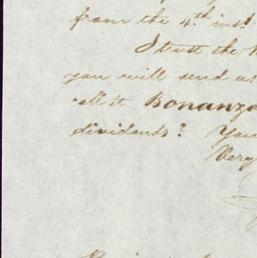 from the 4.th inst.
I trust the
you will send us
call it Bonanza
dividends? You
Very